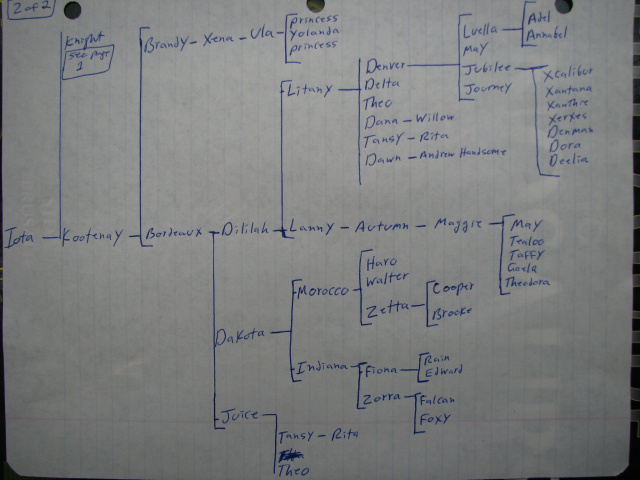 2 of 2
Knight
see page
1
Brandy - Xena - Ula
princess
Yolanda
princess
Luella
May
Jubilee
Journey
Adel
Annabel
Litany
Denver
Delta
Theo
Dana - Willow
Tansy - Rita
Dawn - Andrew Handsome
Xcalibur
Xantana
Xanthie
Xerxes
Denman
Dora
Deelia
Iota - Kootenay - Bordeaux - Dililah - Lanny - Autumn - Maggie
May
Tealoo
Taffy
Theodora
Dakota
Morocco
Haro
Walter
Zetta
Cooper
Brooke
Indiana
Fiona
Rain
Edward
Zorra
Falcan
Foxy
Juice
Tansy - Rita
Theo